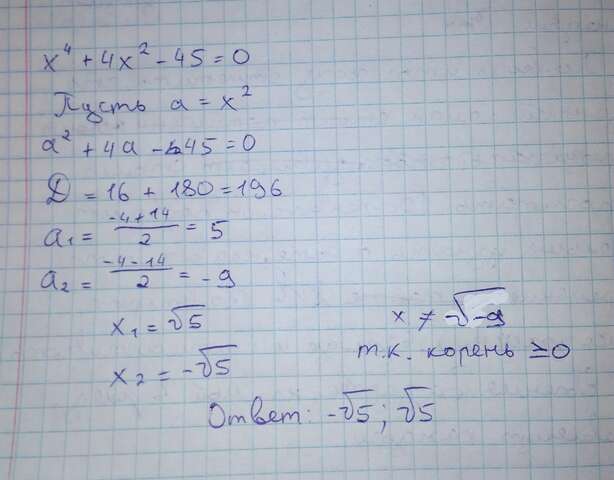 x⁴ + 4x² - 45 = 0
Пусть a = x²
a² + 4a - 45 = 0
D = 16 + 180 = 196
a₁ = (-4+14)/2 = 5
a₂ = (-4-14)/2 = -9
x₁ = √5
x ≠ √-9
x₂ = -√5
т.к. корень ≥0
Ответ: -√5; √5